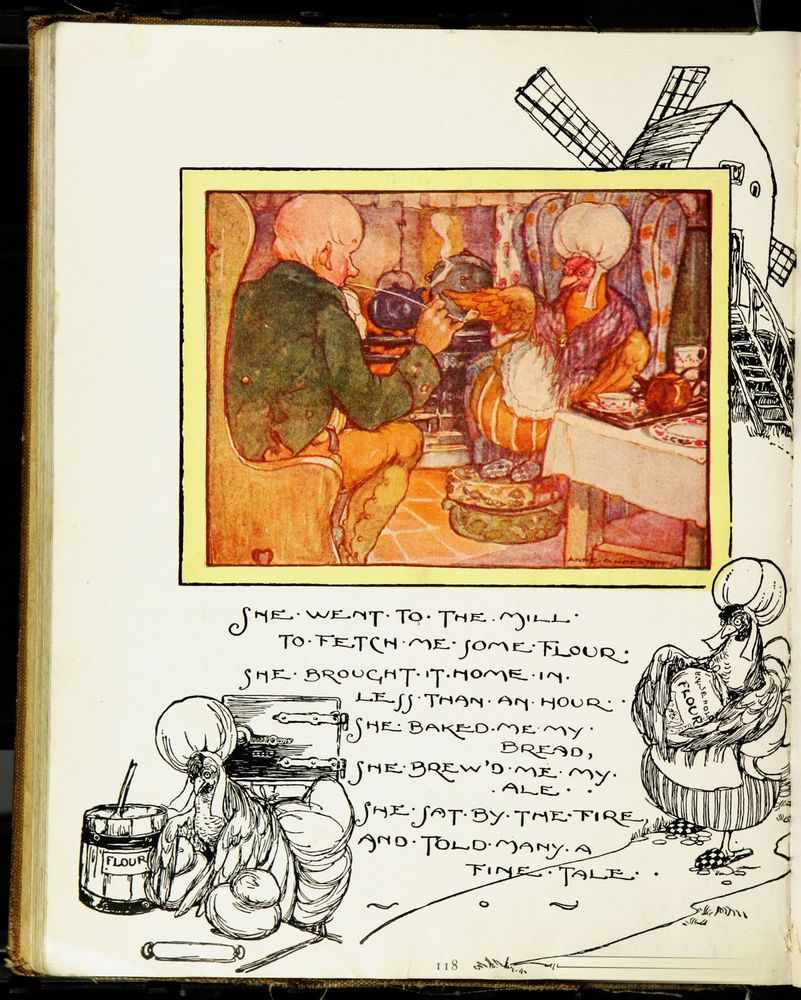 ANNE ANDERSON
SHE · WENT · TO · THE · MILL ·
TO · FETCH · ME · SOME · FLOUR ·
SHE · BROUGHT · IT · HOME · IN ·
LESS · THAN · AN · HOUR ·
SHE · BAKED · ME · MY ·
BREAD,
SHE · BREW'D · ME · MY ·
ALE ·
SHE · SAT · BY · THE · FIRE
AND · TOLD · MANY · A
FINE · TALE ·
HOUSEHOLD
FLOUR
FLOUR
118